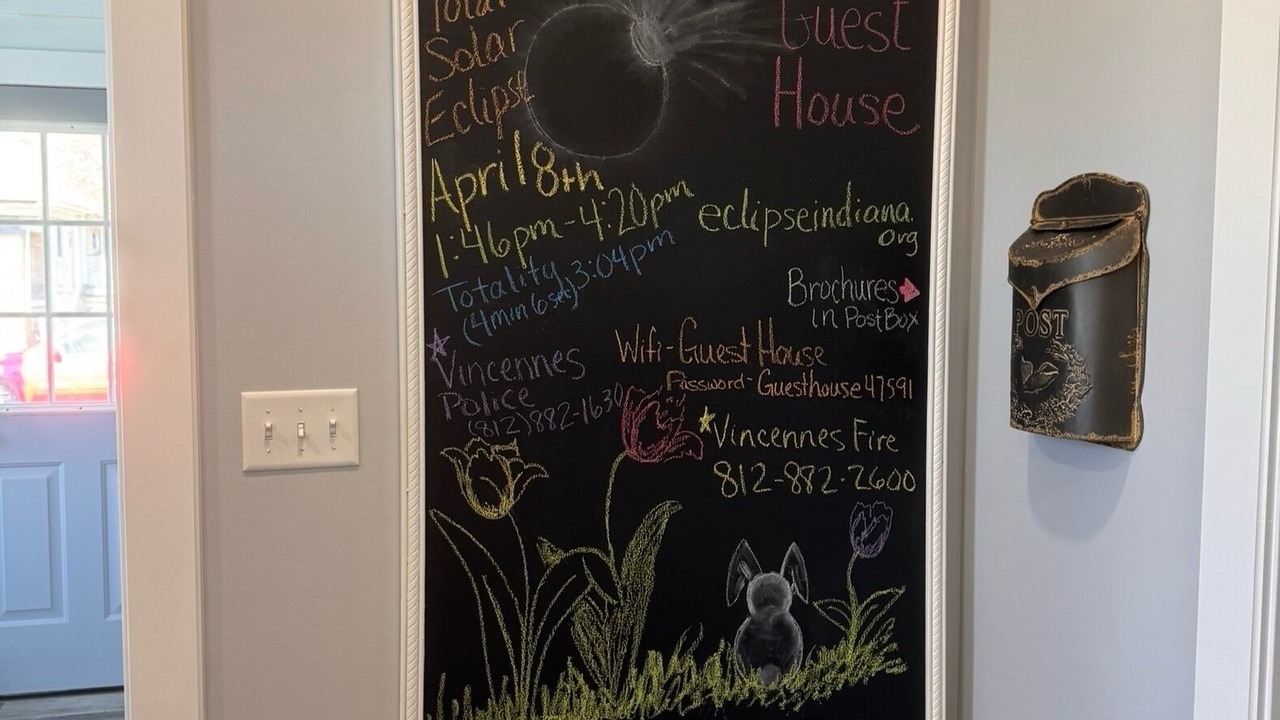 Total
Solar
Eclipse
April 8th
1:46pm-4:20pm
Totality 3:04pm
(4min 6sec)
Vincennes
Police
(812)882-1630
Guest
House
eclipseindiana.
org
Brochures
in PostBox
Wifi-Guest House
Password-Guesthouse47591
Vincennes Fire
812-882-2600
POST